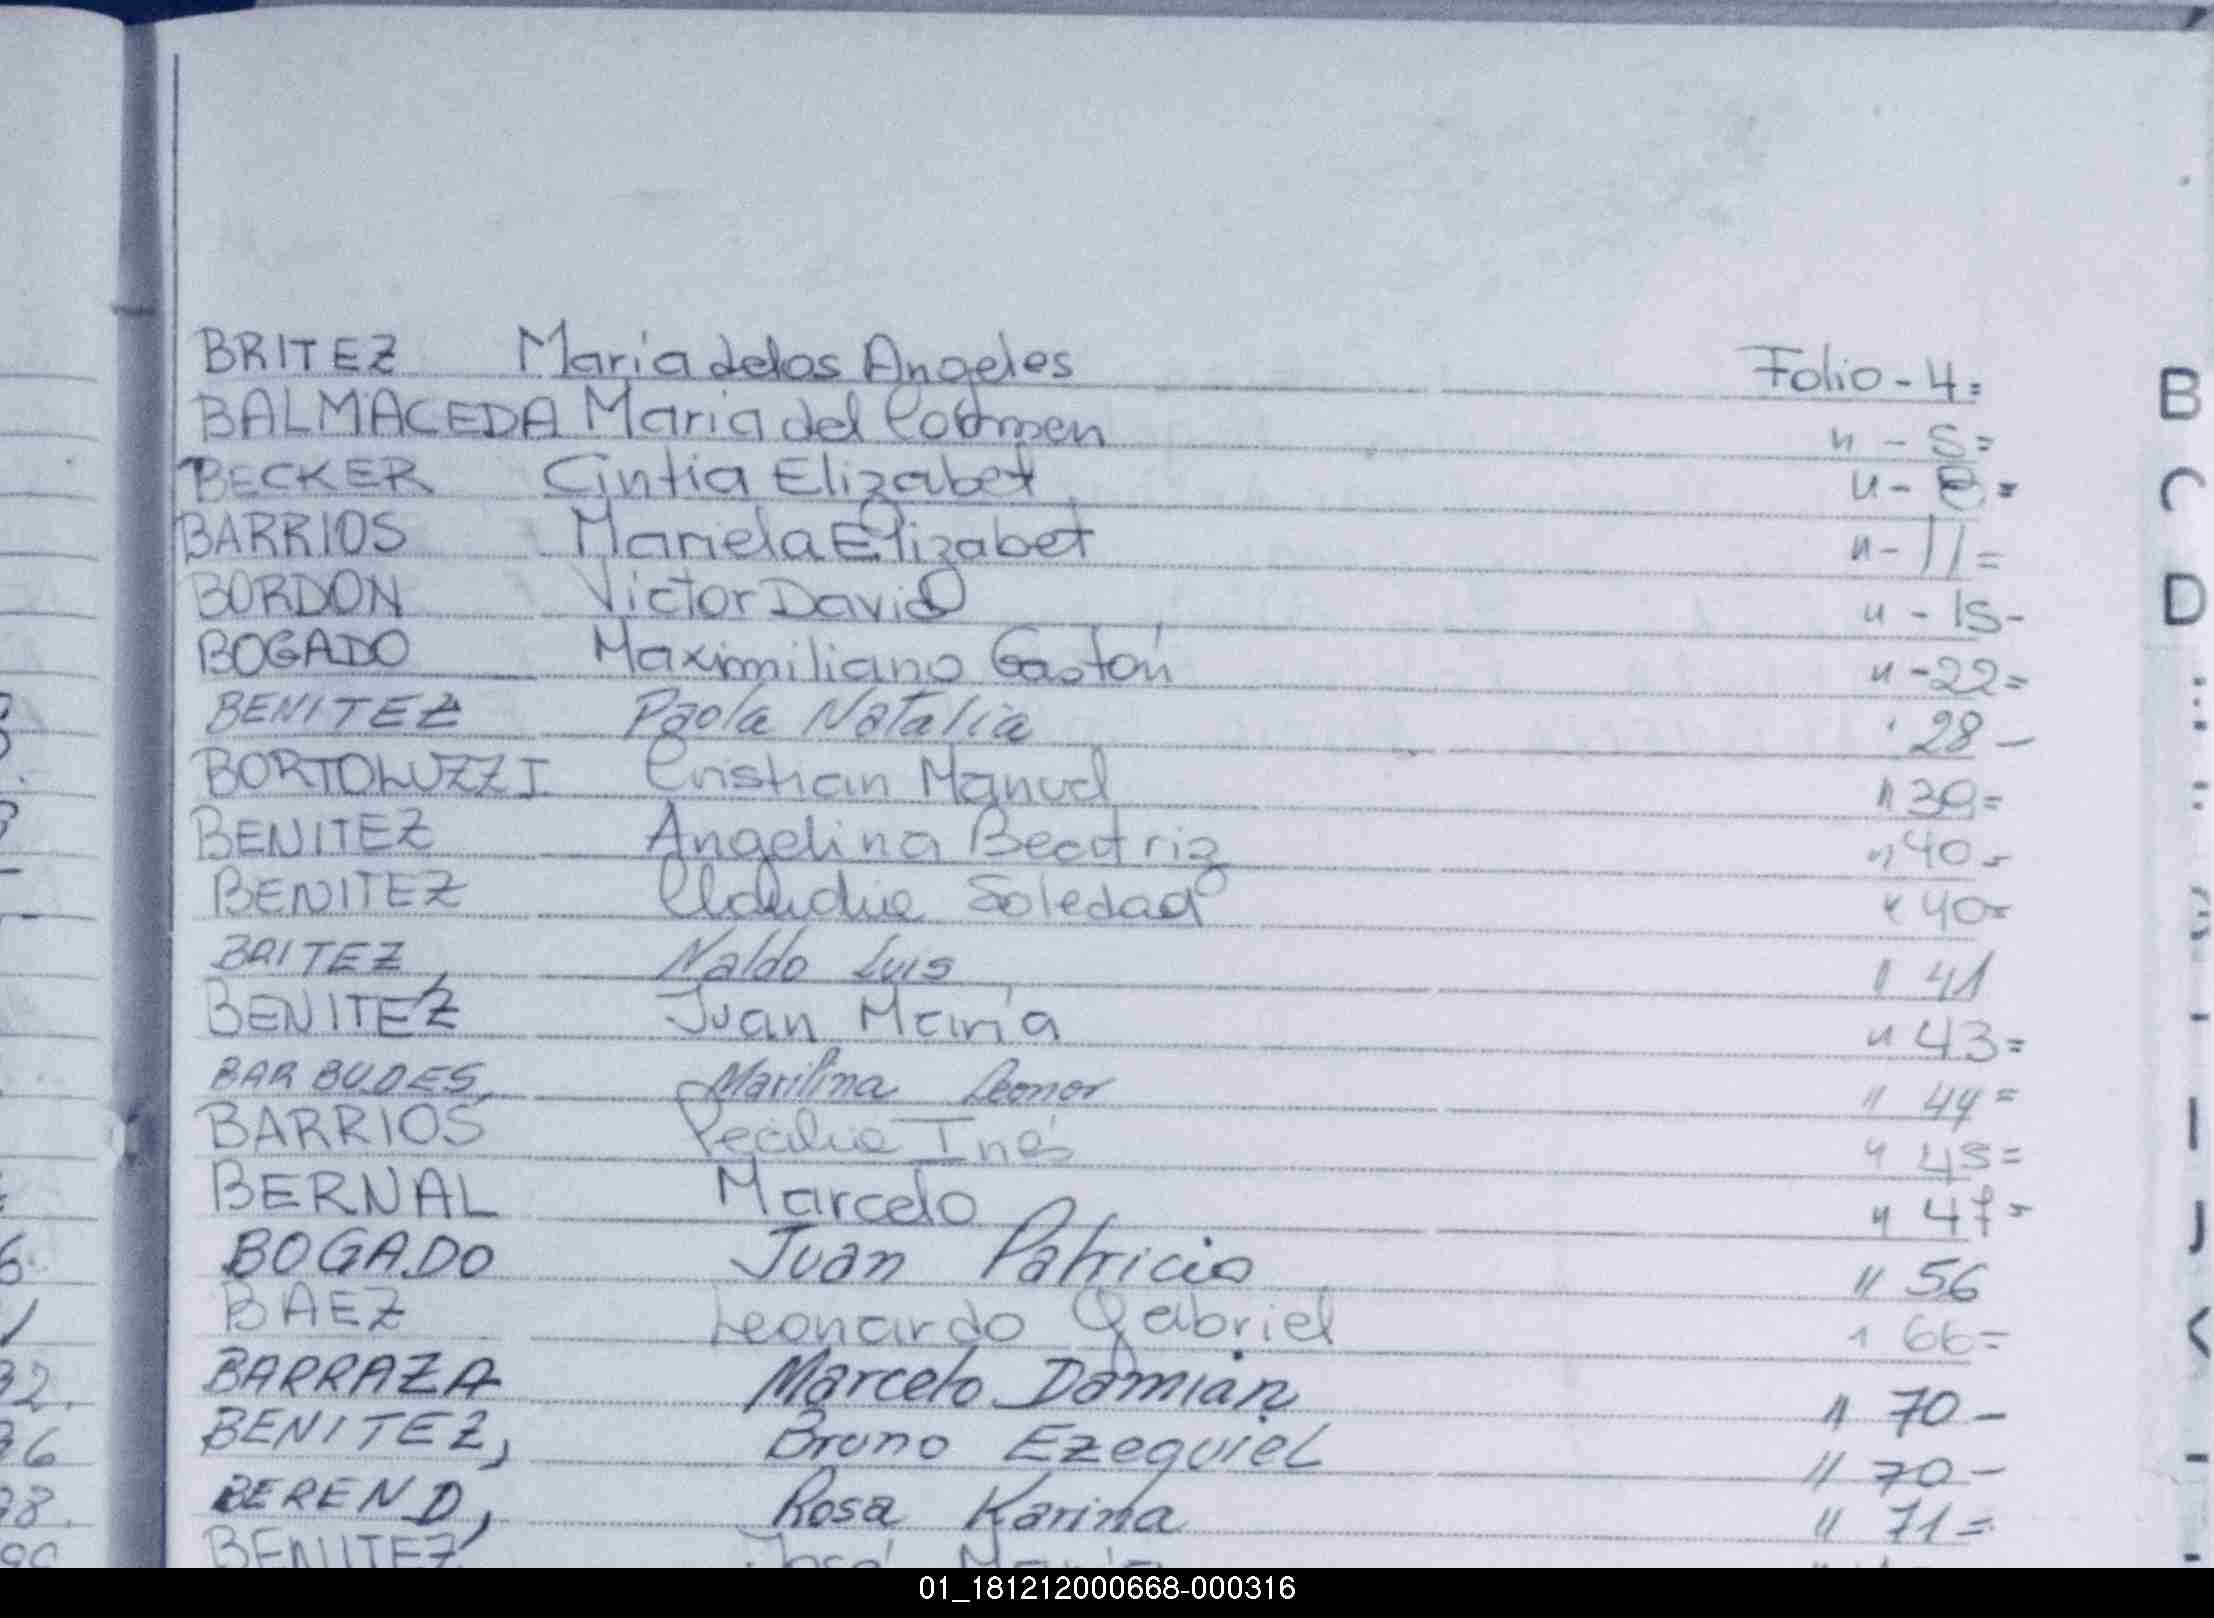 BRITEZ Maria delos Angeles Folio - 4 =
BALMACEDA Maria del Carmen " - 5 =
BECKER Cintia Elizabet " - 8 =
BARRIOS Mariela Elizabet " - 11 =
BORDON Victor David " - 15 -
BOGADO Maximiliano Gastón " - 22 =
BENITEZ Paola Natalia " 28 -
BORTOLUZZI Cristian Manuel " 39 =
BENITEZ Angelina Beatriz " 40 -
BENITEZ Claudia Soledad " 40 =
BRITEZ, Naldo Luis " 41
BENITEZ Juan María " 43 =
BARBUDES, Marilina Leonor " 44 =
BARRIOS Cecilia Inés " 45 =
BERNAL Marcelo " 47 =
BOGADO Juan Patricio " 56
BAEZ Leonardo Gabriel " 66 =
BARRAZA Marcelo Damián " 70 -
BENITEZ, Bruno Ezequiel " 70 -
BEREND, Rosa Karina " 71 =
BENITEZ José María
B
C
D
I
J
K
01_181212000668-000316